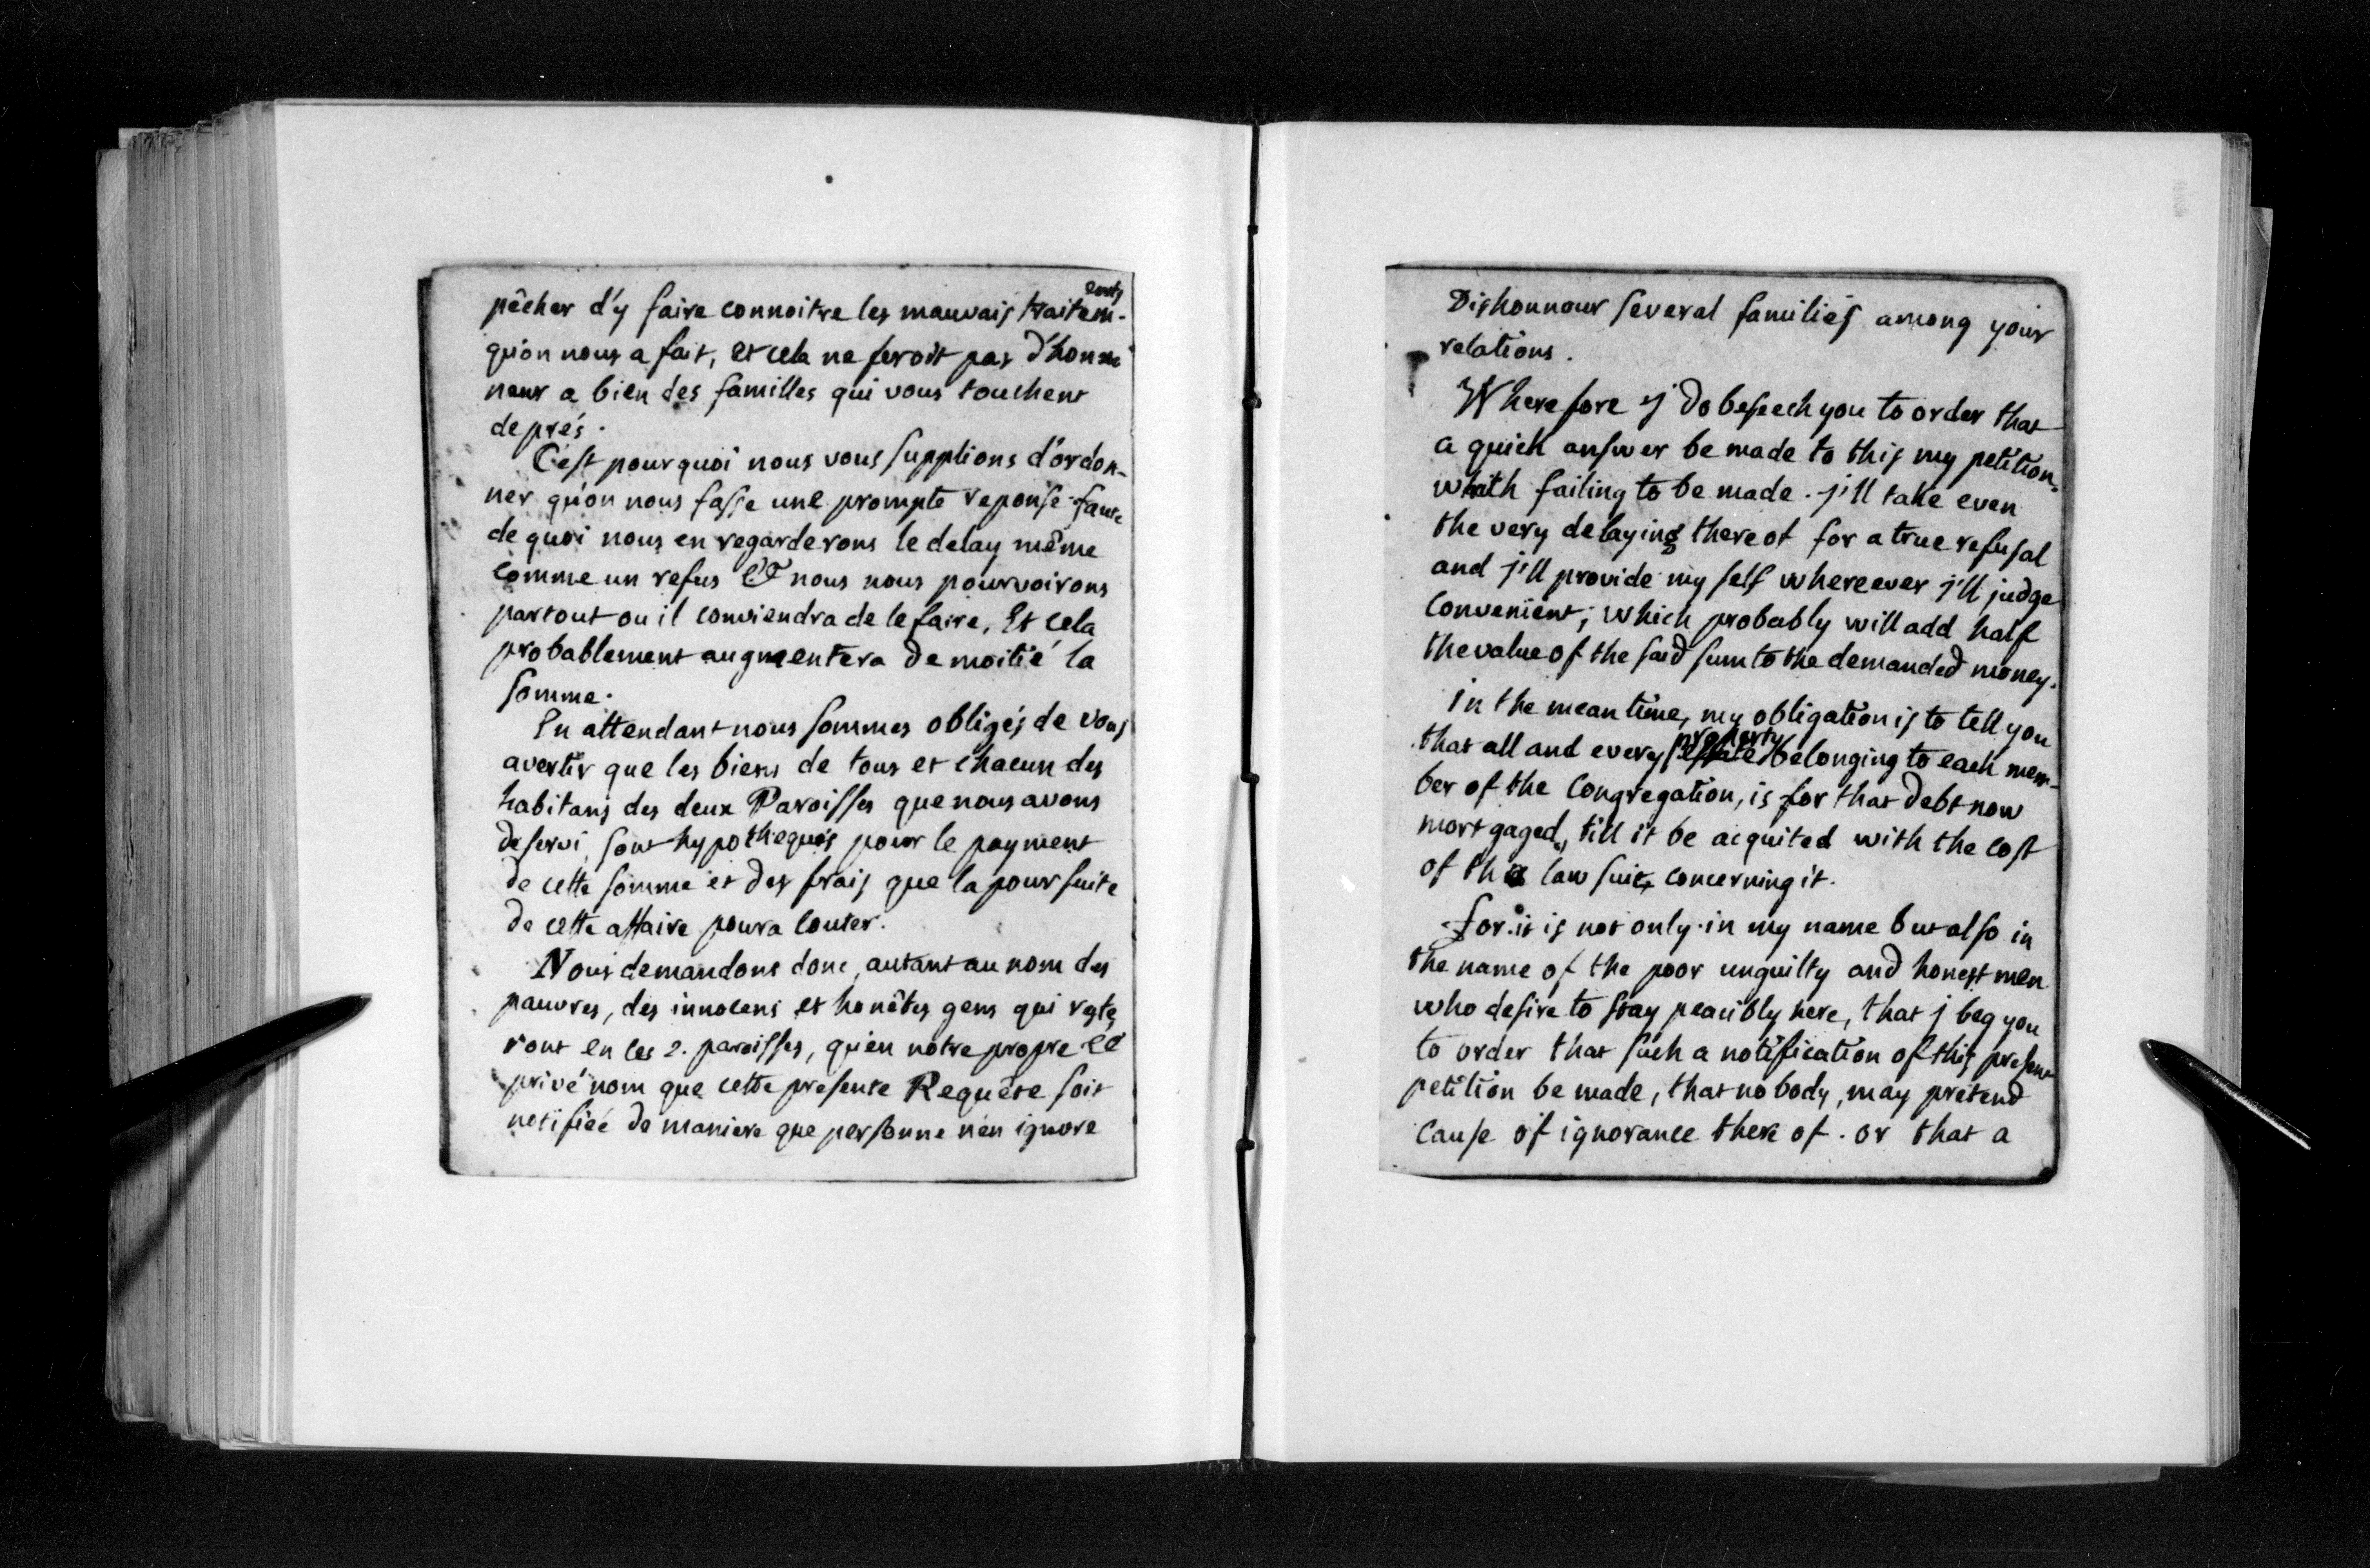 pêcher d'y faire connoitre les mauvais traitem-ents
qu'on nous a fait, et cela ne feroit pas d'hon
neur a bien des familles qui vous touchent
de prés.
C'est pourquoi nous vous supplions d'ordon-
ner qu'on nous fasse une prompte reponse faute
de quoi nous en regarderons le delay même
comme un refus Et nous nous pourvoirons
partout ou il conviendra de le faire, Et cela
probablement augmentera de moitié la
somme.
En attendant nous sommes obligés de vous
avertir que les biens de tous et chacun des
habitans des deux Paroisses que nous avons
deservi, sont hypothequés pour le payment
de cette somme et des frais que la poursuite
de cette affaire poura couter.
Nous demandons donc, autant au nom des
pauvres, des innocens et honêtes gens qui reste
ront en les 2. paroisses, qu'en nôtre propre et
privé nom que cette presente Requête soit
notifiéé de maniere que personne n'en ignore
Dishonnour several families among your
relations.
Wherefore j do beseech you to order that
a quick answer be made to this my petition.
which failing to be made. j'll take even
the very delaying thereof for a true refusal
and j'll provide my self whereever j'll judge
convenient; which probably will add half
the value of the said sum to the demanded money.
in the mean time, my obligation is to tell you
that all and every property belonging to each mem-
ber of the Congregation, is for that debt now
mortgaged, till it be acquited with the cost
of the law suit, concerning it.
for it is not only in my name but also in
the name of the poor unguilty and honest men
who desire to stay peacibly here, that j beg you
to order that such a notification of this present
petition be made, that no body, may pretend
cause of ignorance there of. or that a